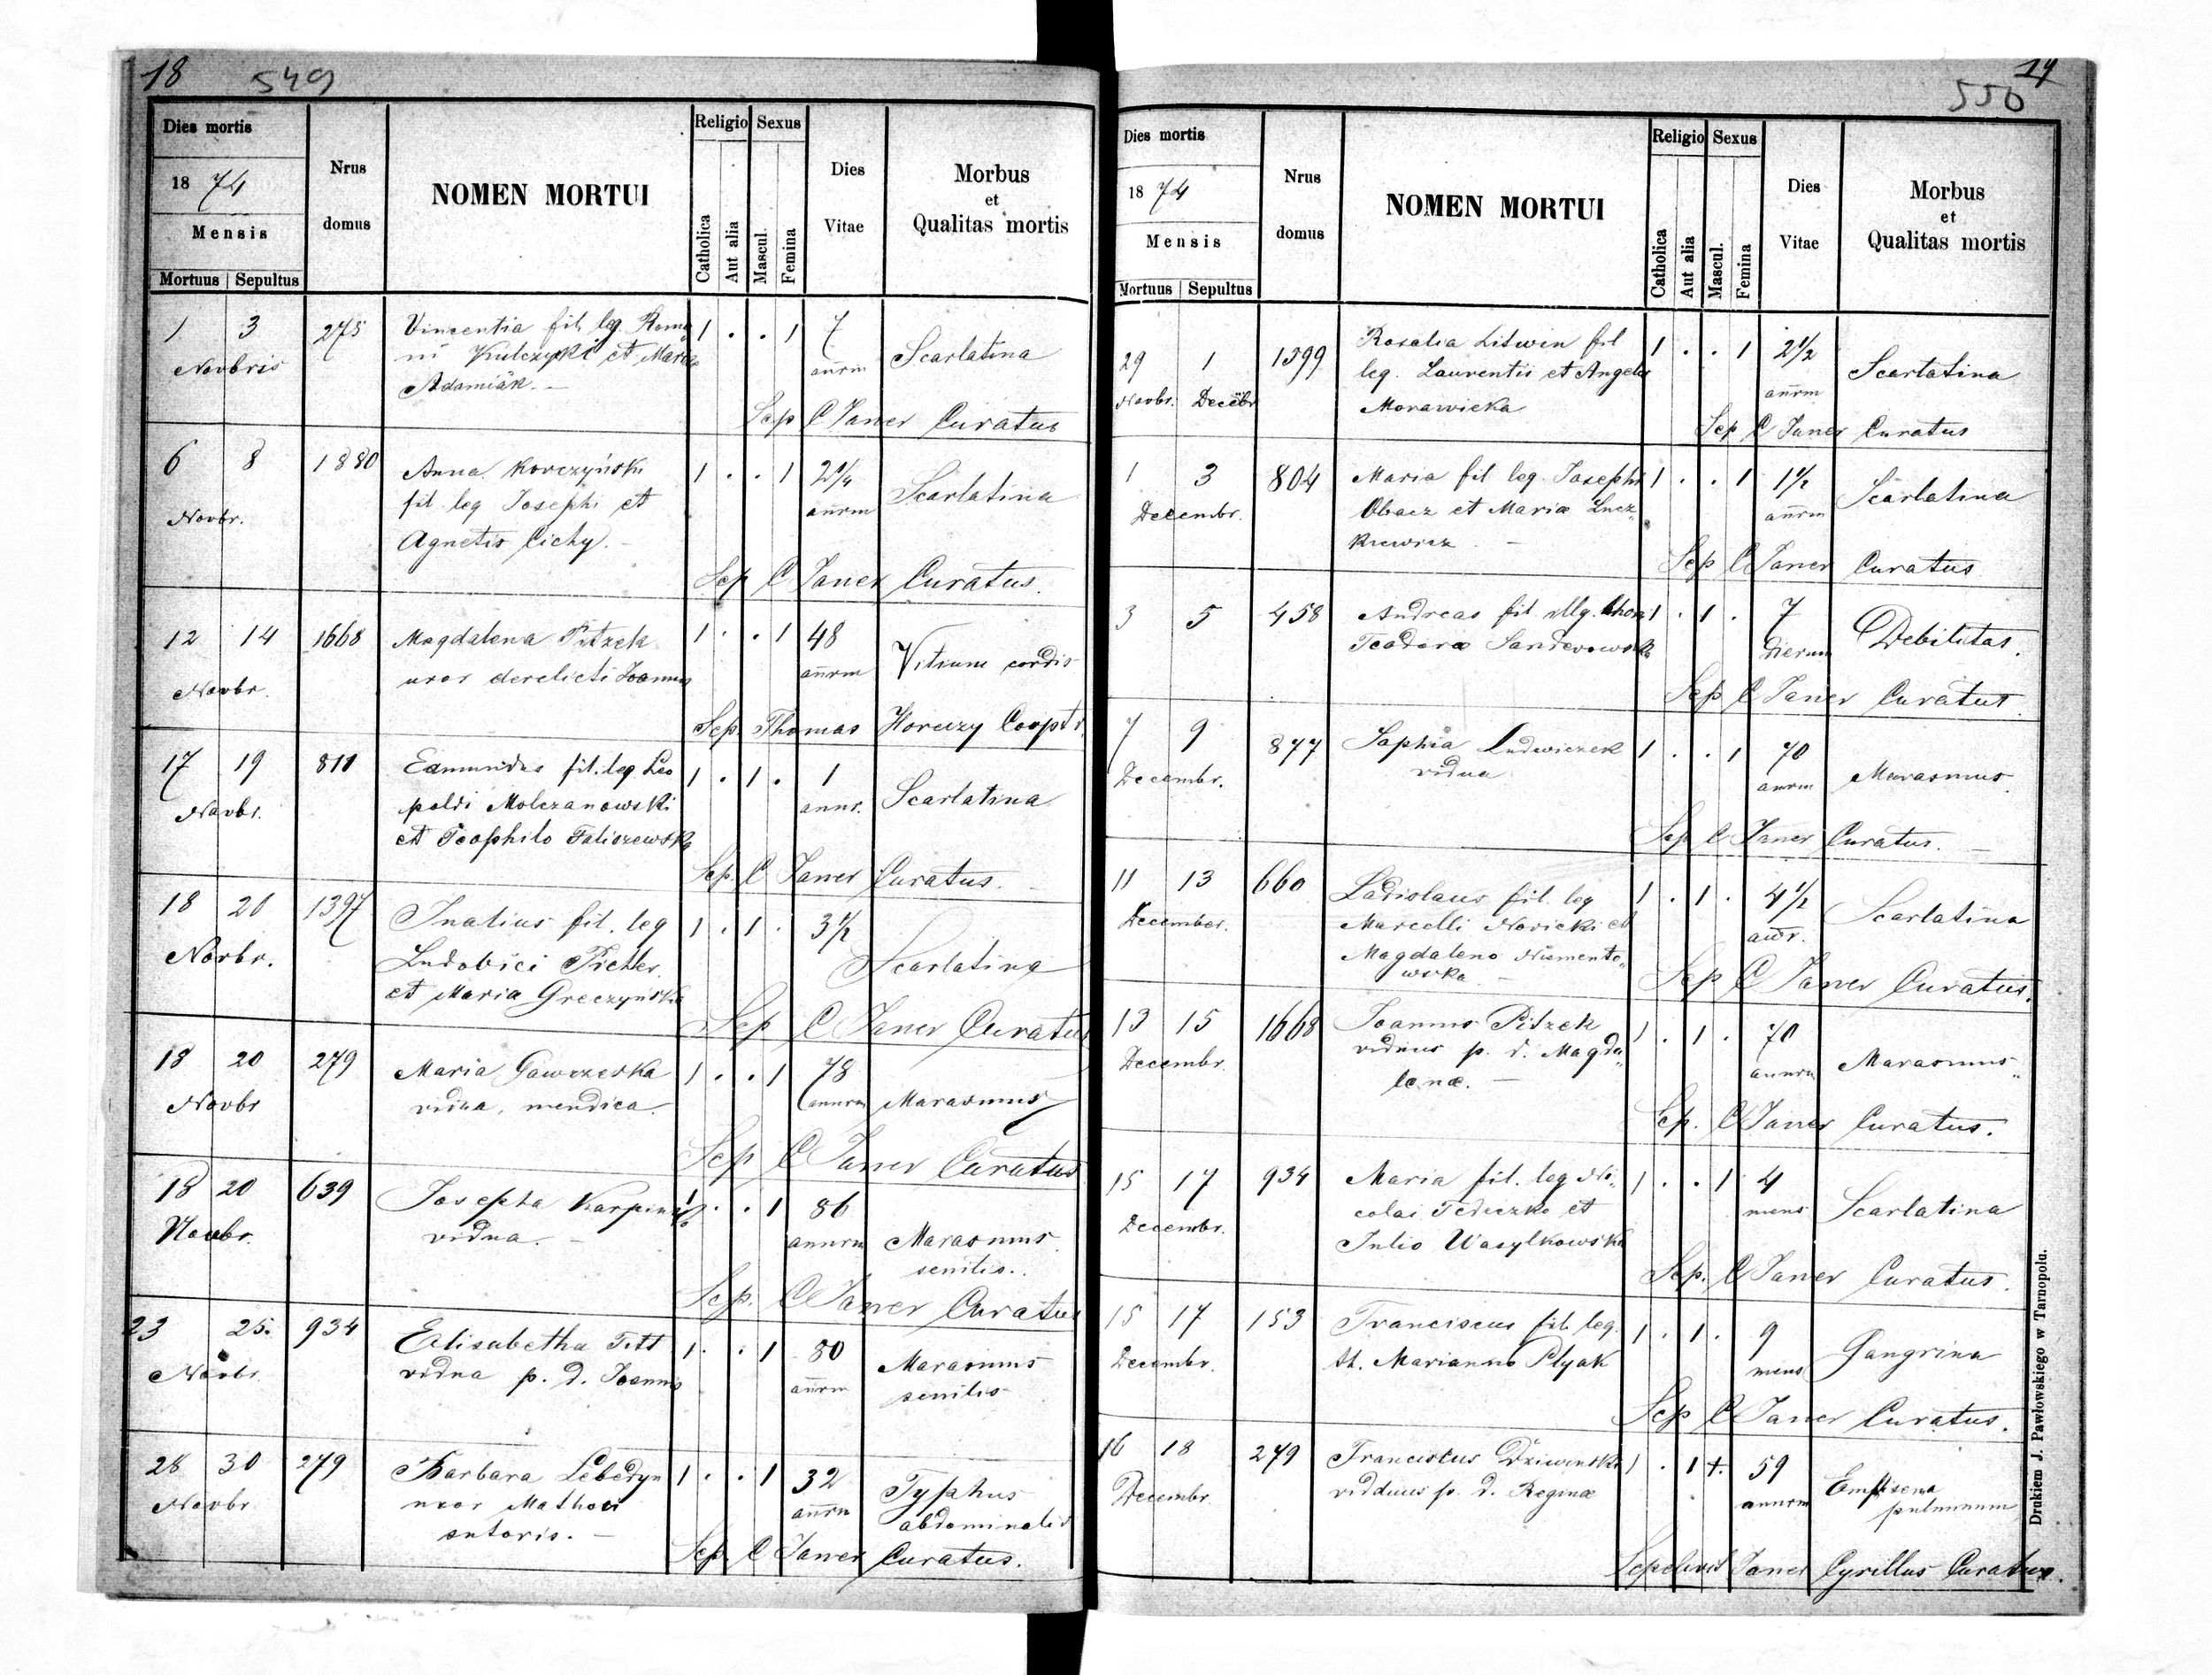 18 549
Dies mortis
Religio Sexus
18 74
Nrus domus
NOMEN MORTUI
Catholica Aut alia Mascul. Femina
Dies Vitae
Morbus et Qualitas mortis
Mensis
Mortuus Sepultus
1 3 275 Vincentia fil. leg. Roma 1 . . 1 7
Novbris ni Kulczycki et Maria añrm Scarlatina
Adamiäk. –
Sep C Janer Curatus
6 8 1880 Anna Korczyński 1 . . 1 2 1/4
Novbr. fil. leg Josephi et añrm Scarlatina
Agnetis Cichy. –
Sep C Janer Curatus.
12 14 1668 Magdalena Pitzek 1 . . 1 48
Novbr. uxor derelicti Joannis añrm Vitium cordis
Sep. Thomas Horczy Coopt.
17 19 811 Edmundus fil. leg. Leo 1 . 1 . 1
Novbr. poldi Molczanowski annr. Scarlatina
et Teophilo Faliszewska
Sep. C Janer Curatus.
18 20 1397 Inatius fil. leg 1 . 1 . 3 1/2
Novbr. Ludovici Pichler Scarlatina
et Maria Greczyńska
Sep C Janer Curatus
18 20 279 Maria Gawrzeska 1 . . 1 78
Novbr vidua, mendica. annrm Marasmus
Sep C Janer Curatus
18 20 639 Josepha Karpinska 1 . . 1 86
Novbr. vidua. – annrm Marasmus
senilis.
Sep. C Janer Curatus
23 25. 934 Elisabetha Titt 1 . . 1 80
Novbr. vidua p. d. Joannis añrm Marasmus
senilis
28 30 279 Barbara Lebedyn 1 . . 1 32
Novbr uxor Mathaei añrm Typhus
sutoris. – abdominalis
Sep. C Janer Curatus.
19
550
Dies mortis
Religio Sexus
18 74
Nrus domus
NOMEN MORTUI
Catholica Aut alia Mascul. Femina
Dies Vitae
Morbus et Qualitas mortis
Mensis
Mortuus Sepultus
29 1 1399 Rosalia Litwin fil 1 . . 1 2 1/2
Novbr. Decebr leg. Laurentii et Angela añrm Scarlatina
Morawicka
Sep C Janer Curatus
1 3 804 Maria fil leg. Josephi 1 . . 1 1 1/2
Decembr. Obacz et Maria Lucz„ añrm Scarlatina
kiewicz. –
Sep C Janer Curatus
3 5 458 Andreas fil illg. 1 . 1 . 7
Teodora Sanderowska dierum Debilitas.
Sep C Janer Curatus
7 9 877 Sophia Ludwiczek 1 . . 1 70
Decembr. vidua annrm Marasmus.
Sep C Janer Curatus. –
11 13 660 Ladislaus fil. leg 1 . 1 . 4 1/2
December. Marcelli Novicki et Scarlatina
Magdaleno Niemento„
wska. –
Sep C Janer Curatus.
13 15 1668 Joannes Pitzek 1 . 1 . 70
Decembr. viduus p. d. Magda„ annrm Marasmus„
lenæ. –
Sep. C Janer Curatus.
15 17 934 Maria fil. leg Ni„ 1 . . 1 4
Decembr. colai Tediczko et mens Scarlatina
Julio Wasylkowska
Sep. C Janer Curatus.
15 17 153 Franciscus fil. leg. 1 . 1 . 9
Decembr. Marianno Plyak mens Gangrina
Sep C Janer Curatus.
16 18 279 Franciscus Dziwinski 1 . 1 +. 59
Decembr. vidduus p. d. Reginæ annrm Emfisena
pulmonum
Sepelivit Janer Cyrillus Curatus.
Drukiem J. Pawłowskiego w Tarnopolu.